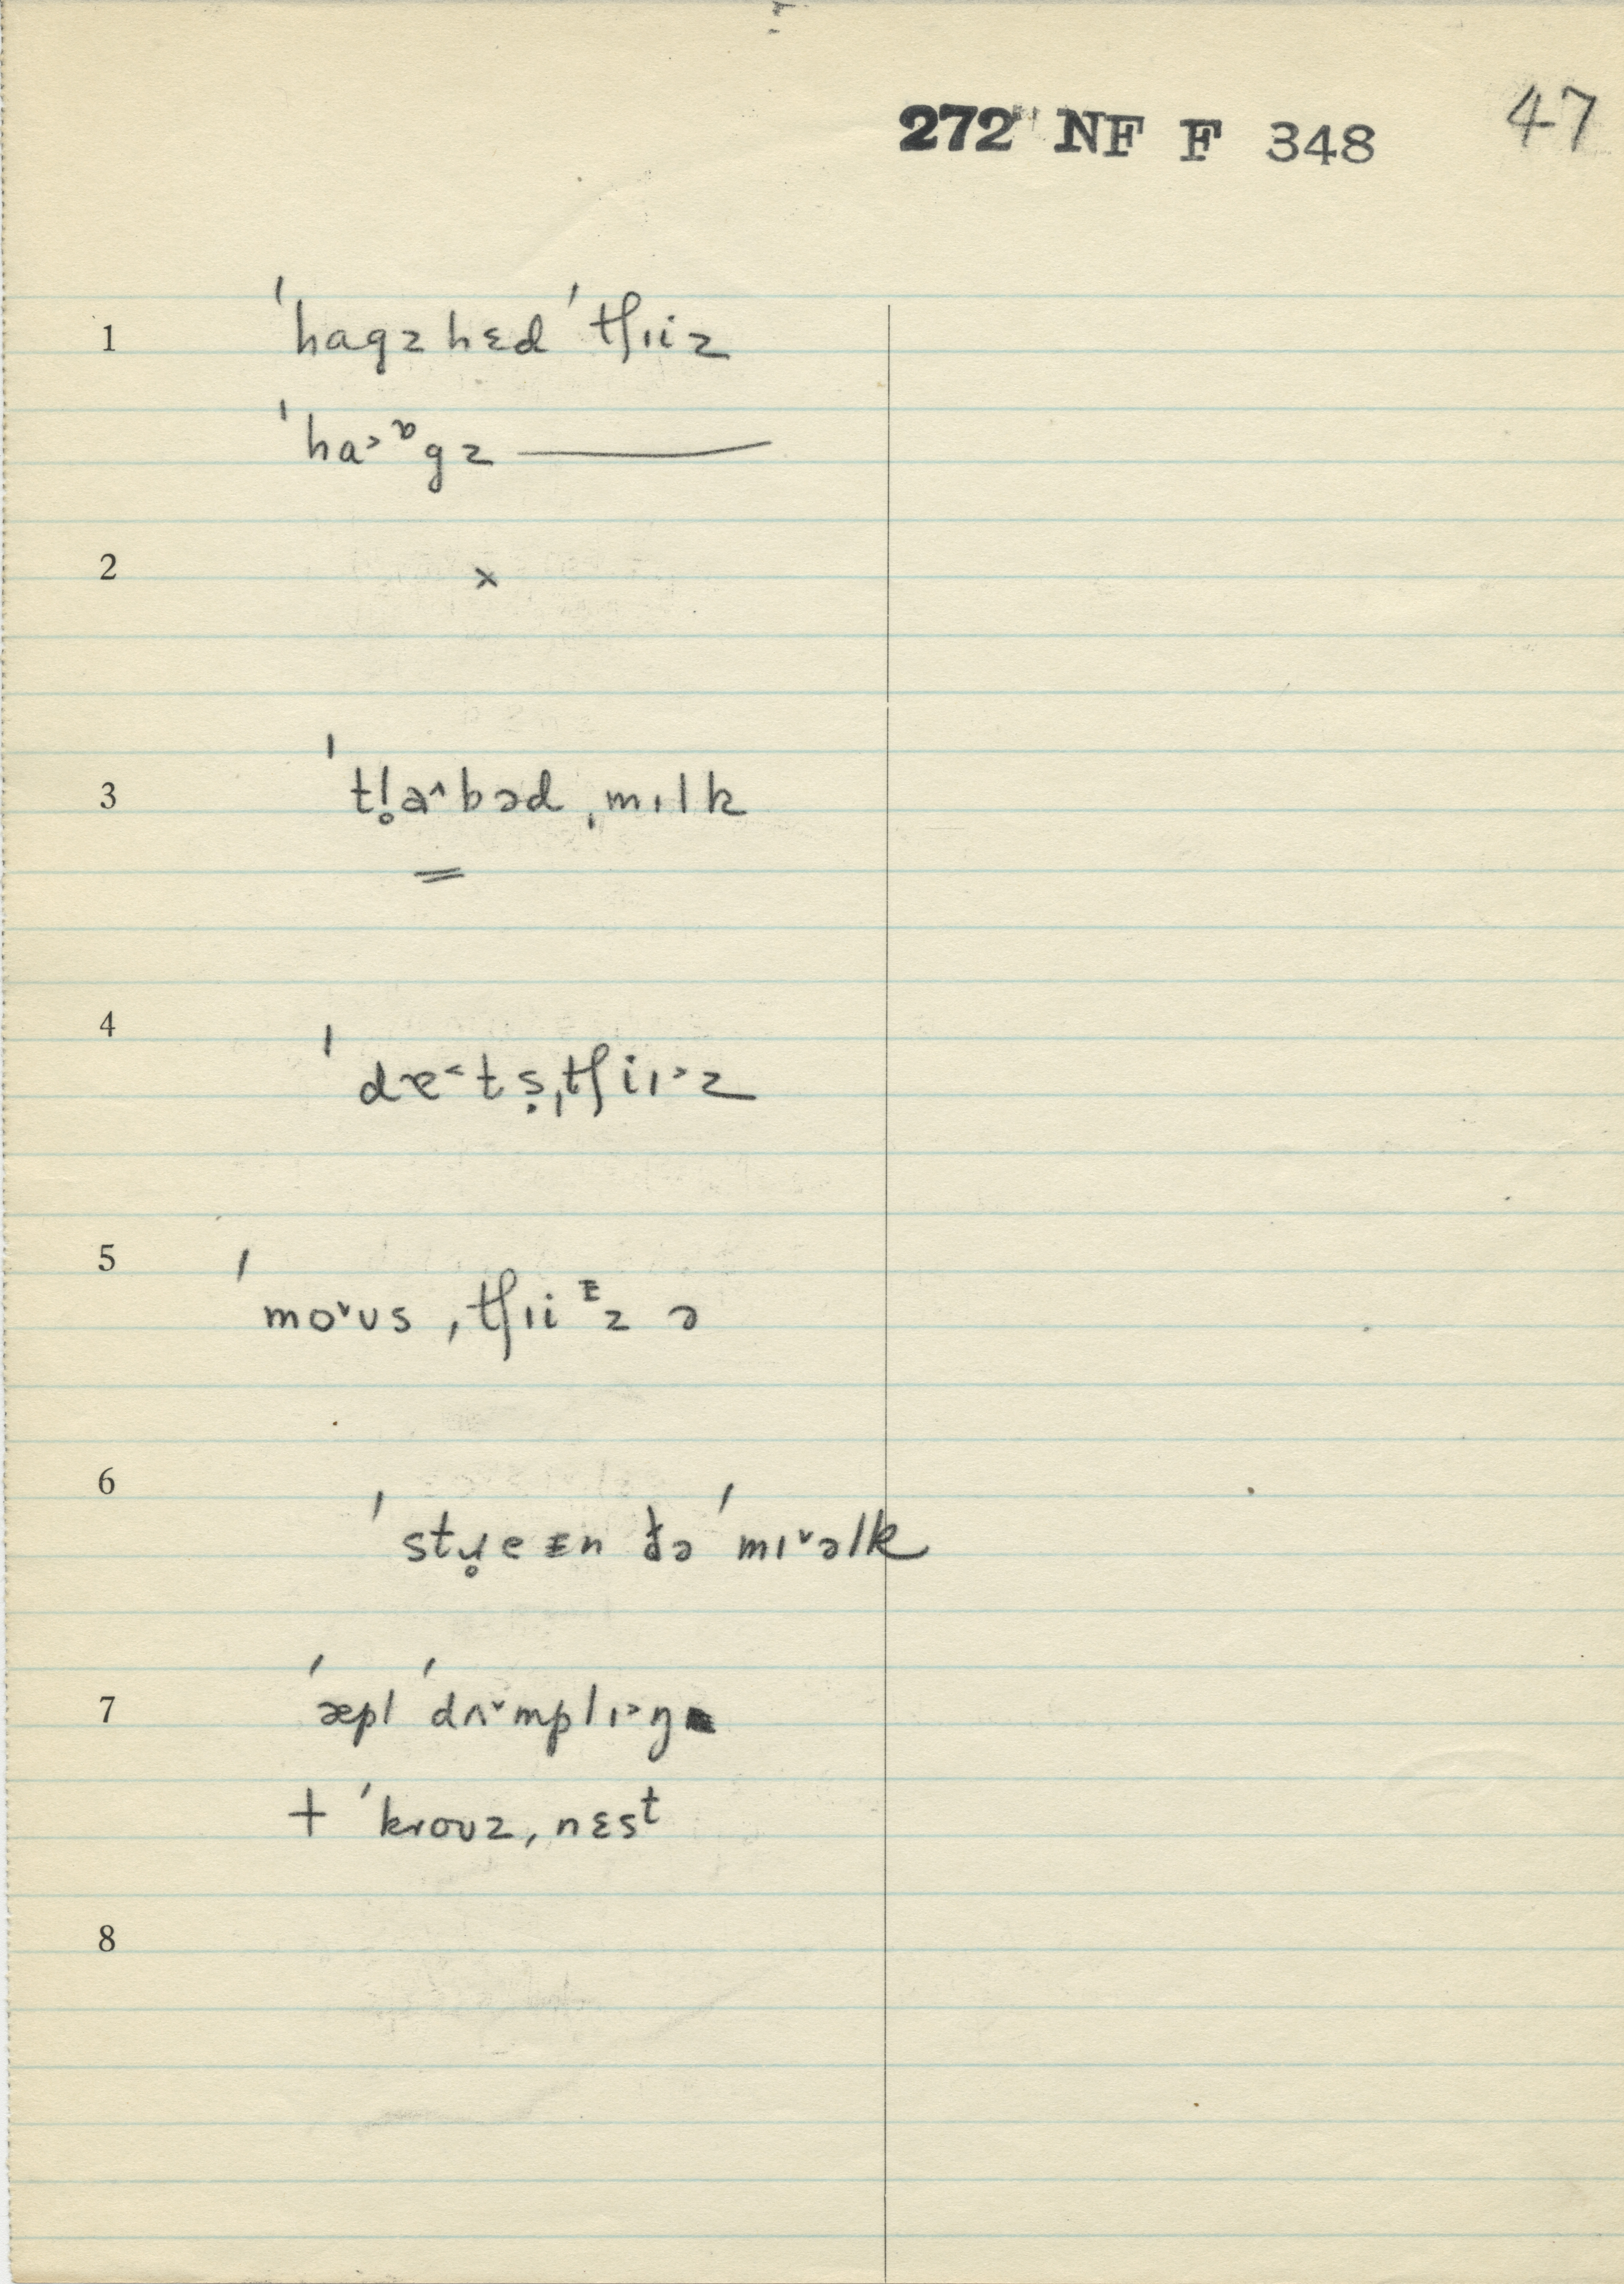 272 NF F 348 47
1 ˈhagzhɛd ˈtʃɪiz
ˈha˃ᶹgz ———
2 ×
3 ˈtl̥a^bəd ˌmɪlk
=
4 ˈdæ˂tṣˌtʃiɪ˃z
5 ˈmo˅ʊs ˌtʃɪiᴱz ə
6 ˈstɹ̥eᴇn ðə ˈmɪ˅əlk
7 ˈæpl ˈdʌ˅mplɪ˃ŋ
+ ˈkroʊz ˌnɛst
8